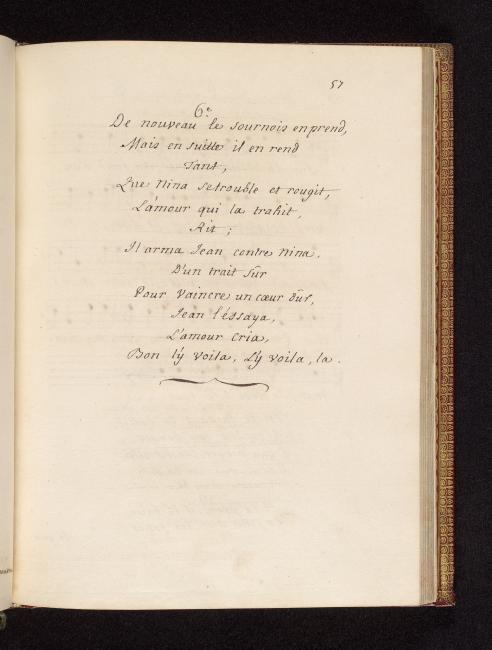 57
6.e
De nouveau le sournois en prend,
Mais en suitte il en rend
Tant,
Que Nina se trouble et rougit,
L'amour qui la trahit,
Rit ;
Il arma Jean contre Nina.
D'un trait sûr
Pour vaincre un cœur dûr,
Jean l'éssaya,
L'amour cria,
Bon l'ÿ voila, L'ÿ voila, la.